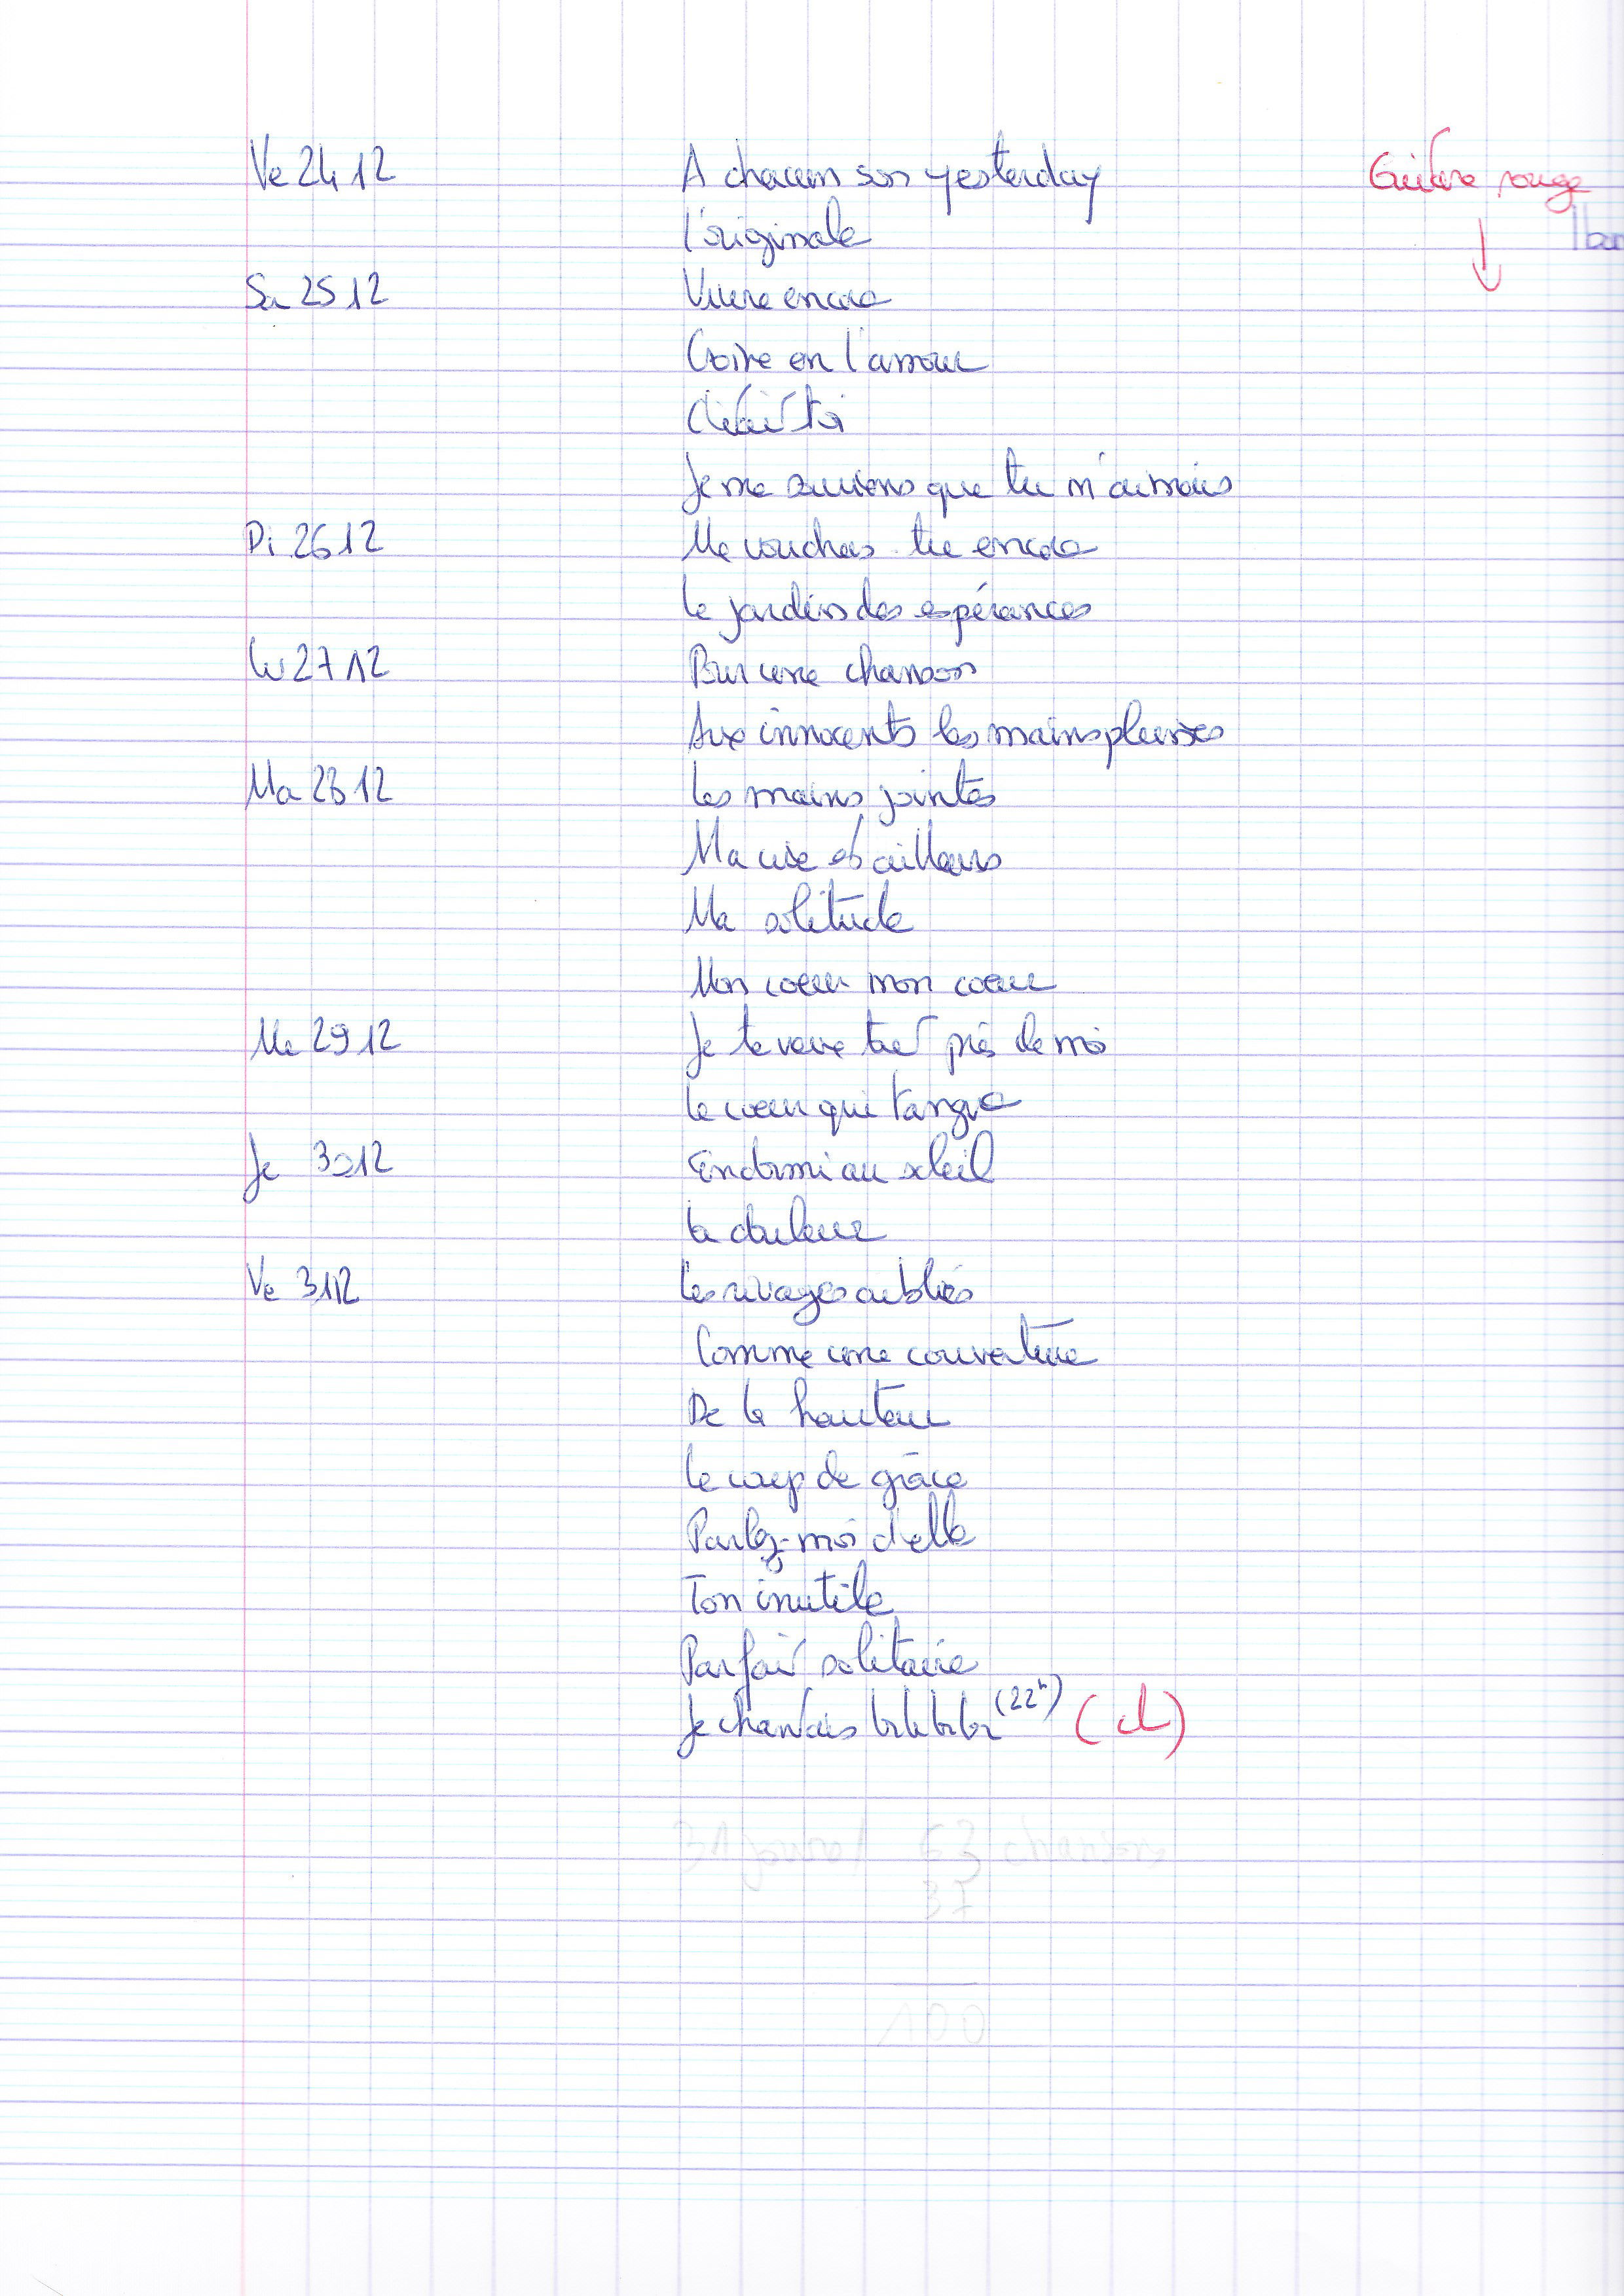 Ve 24 12 A chacun son yesterday Guitare rouge
L'originale
Sa 25 12 Vivre encore
Croire en l'amour
C'était toi
Je me souviens que tu m'aimais
Di 26 12 Me voudras-tu encore
Le jardin des espérances
Lu 27 12 Pour une chanson
Aux innocents les mains pleines
Ma 28 12 Les mains jointes
Ma vie est ailleurs
Ma solitude
Mon coeur mon coeur
Me 29 12 Je te veux tout près de moi
Le coeur qui tangue
Je 30 12 Endormi au soleil
La douleur
Ve 31 12 Les rivages oubliés
Comme une couverture
De la hauteur
Le coup de grâce
Parlez-moi d'elle
Ton inutile
Parfait solitaire
Je chantais (22h)
31 jours / 63 chansons
37
100